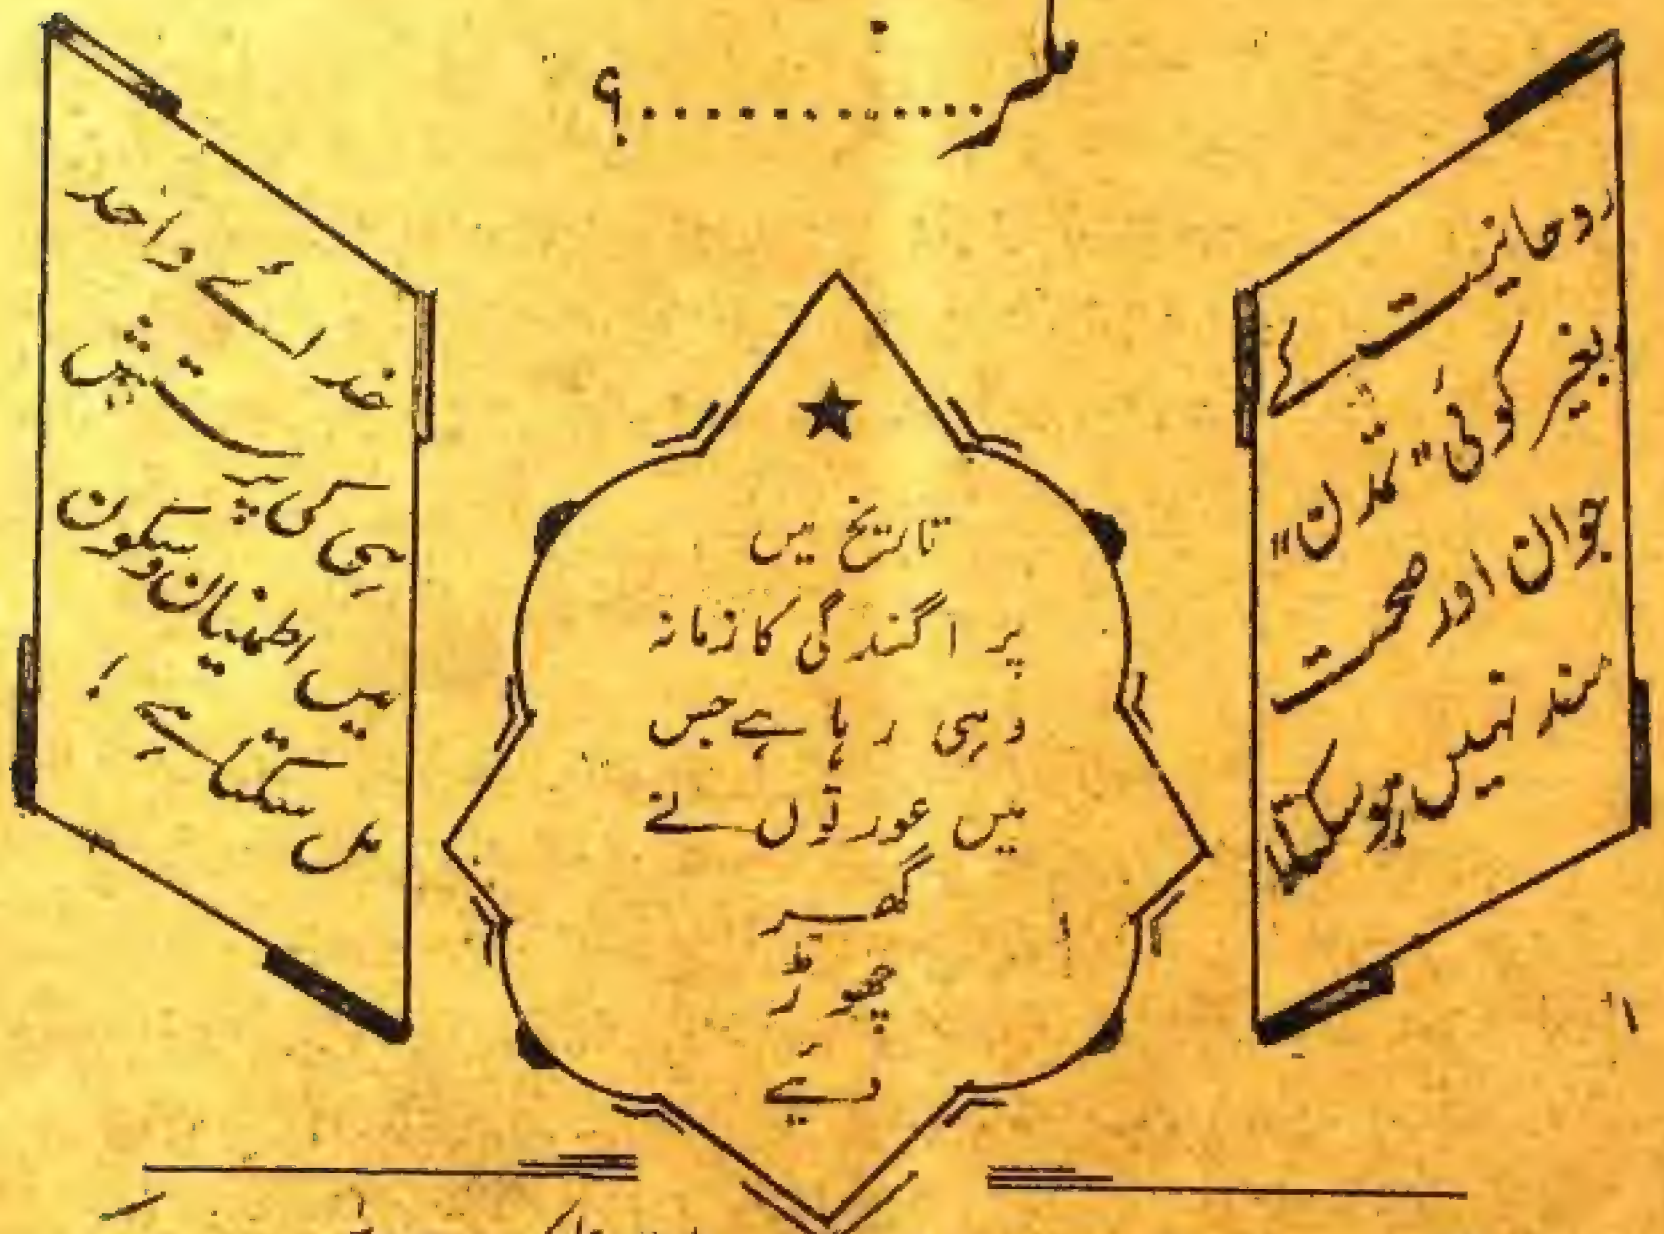 مگر
............؟
روحانیت کے
بغیر کوئی "تمدن"
جوان اور صحت
مند نہیں ہو سکتا
تاریخ میں
پراگندگی کا زمانہ
وہی رہا ہے جس
میں عورتوں نے
گھر
چھوڑ
دیئے
خدائے واحد
ہی کی پرستش
میں اطمینان و سکون
مل سکتا ہے!